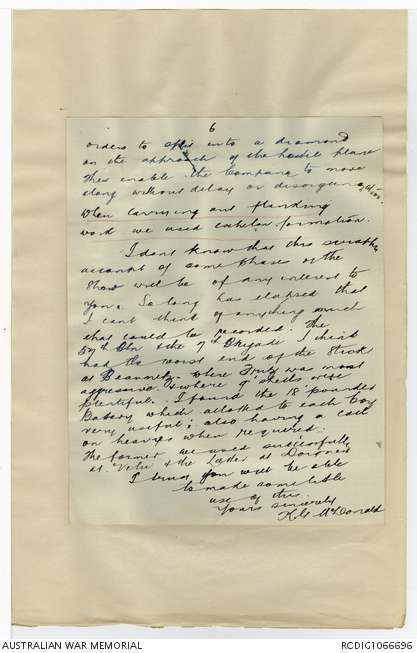 6
orders to split into a diamond
on the approach of the hostile plane
This enable the Company to move
along without delay or disorganization.
When carrying out flanking
work we used echelon formation.
I dont know that this scrappy
account of some phases of the
Show will be of any interest to
you. So long has elapsed that
I cant think of anything much
that could be recorded. The
57th Bn & the 7th Brigade I think
had the worst end of the Stick
at Beaumetz where Fritz was most
aggressive & where 9" shells were
plentiful. I found the 18 pounder
Battery which allotted to each Coy
very useful; also having a call
on heavies when required.
The former we used successfully
at Velu & the latter at Doignies
I trust you will be able
to made some little
use of this
Yours sincerely
K G McDonald
AUSTRALIAN WAR MEMORIAL
RCDIG1066696